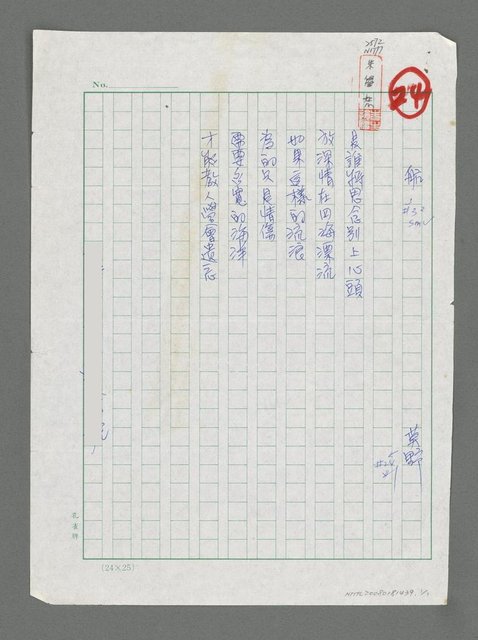 2572
24
No.
船
#32
是誰將思念別上心頭
放深情在四海漂流
如果這樣的流浪
為的只是情傷
需要多寬的海洋
才能教人學會遺忘
莫野
孔雀牌
(24×25)
NMTL20080181439